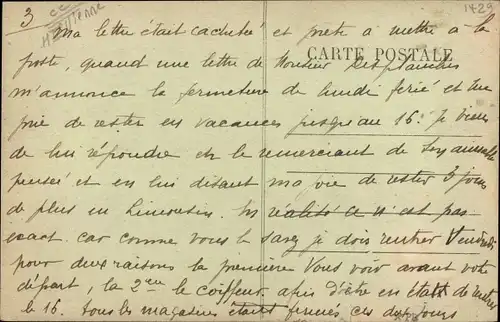 3
Hte Vienne
1429
CARTE POSTALE
Ma lettre était cachetée et prête a mettre a la
poste, quand une lettre de Monsieur Desplanches
m'annonce la fermeture de lundi ferié et me
prie de rester en vacances jusqu'au 16. Je viens
de lui répondre en le remerciant de son aimable
pensée et en lui disant ma joie de rester 3 jours
de plus en Limousin. En réalité ce n'est pas
exact. car comme vous le savez je dois rentrer Vendredi
pour deux raisons la première Vous voir avant votre
départ, la 2ème le coiffeur afin d'être en état de rentrer
le 16. tous les magasins étant fermés ces deux jours